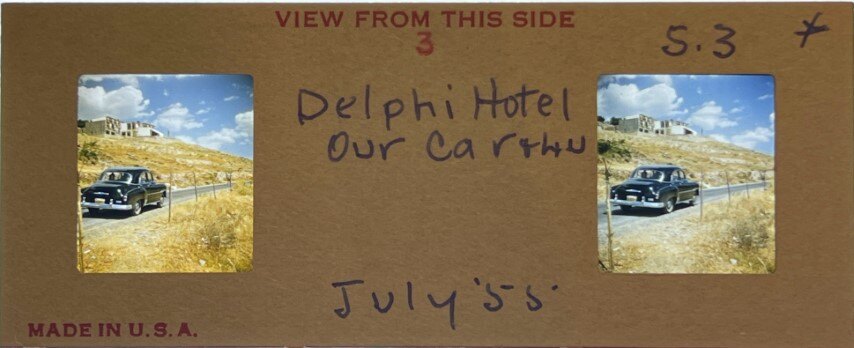 VIEW FROM THIS SIDE
3
S.3
Delphi Hotel
Our Car
July '55.
MADE IN U.S.A.